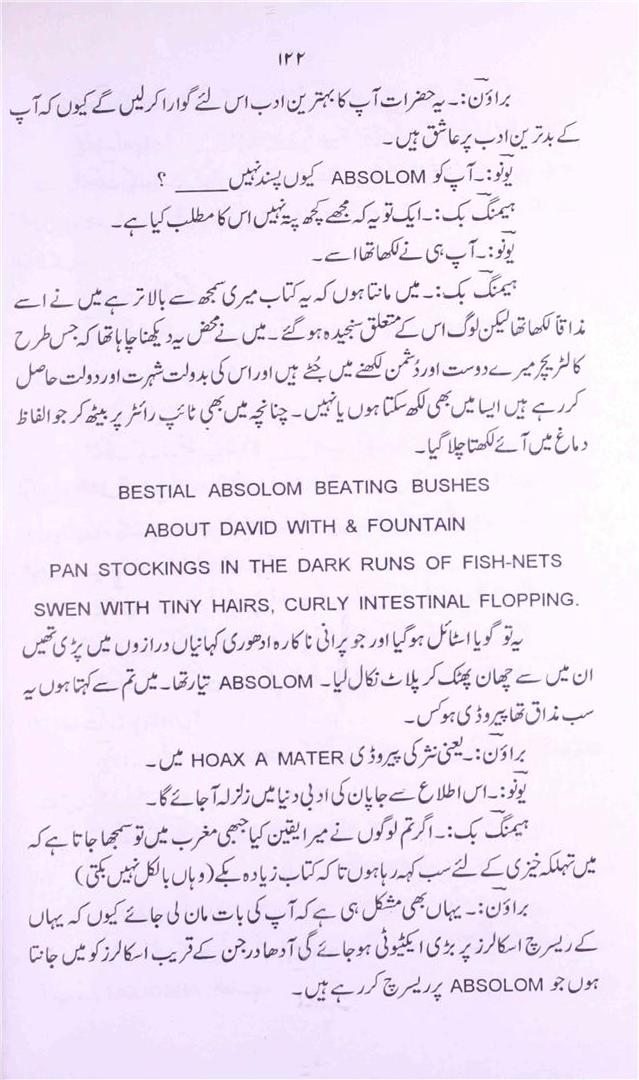 ۱۲۲
براؤن:۔ یہ حضرات آپ کا بہترین ادب اس لئے گوارا کرلیں گے کیوں کہ آپ
کے بدترین ادب پر عاشق ہیں۔
یونو:۔ آپ کو ABSOLOM کیوں پسند نہیں_____ ؟
ہیمنگ بک:۔ ایک تو یہ کہ مجھے کچھ پتہ نہیں اس کا مطلب کیا ہے۔
یونو:۔ آپ ہی نے لکھا تھا اسے۔
ہیمنگ بک:۔ میں مانتا ہوں کہ یہ کتاب میری سمجھ سے بالاتر ہے میں نے اسے
مذاقاً لکھا تھا لیکن لوگ اس کے متعلق سنجیدہ ہوگئے۔ میں نے محض یہ دیکھنا چاہا تھا کہ جس طرح
کا لٹریچر میرے دوست اور دُشمن لکھنے میں جُٹے ہیں اور اس کی بدولت شہرت اور دولت حاصل
کررہے ہیں ایسا میں بھی لکھ سکتا ہوں یا نہیں۔ چنانچہ میں بھی ٹائپ رائٹر پر بیٹھ کر جو الفاظ
دماغ میں آئے لکھتا چلا گیا۔
BESTIAL ABSOLOM BEATING BUSHES
ABOUT DAVID WITH & FOUNTAIN
PAN STOCKINGS IN THE DARK RUNS OF FISH-NETS
SWEN WITH TINY HAIRS, CURLY INTESTINAL FLOPPING.
یہ تو گویا اسٹائل ہوگیا اور جو پرانی ناکارہ ادھوری کہانیاں درازوں میں پڑی تھیں
ان میں سے چھان پھٹک کر پلاٹ نکال لیا۔ ABSOLOM تیار تھا۔ میں تم سے کہتا ہوں یہ
سب مذاق تھا پیروڈی ہوکس۔
براؤن:۔ یعنی نثر کی پیروڈی HOAX A MATER میں۔
یونو:۔ اس اطلاع سے جاپان کی ادبی دنیا میں زلزلہ آجائے گا۔
ہیمنگ بک:۔ اگر تم لوگوں نے میرا یقین کیا جبھی مغرب میں تو سمجھا جاتا ہے کہ
میں تہلکہ خیزی کے لئے سب کہہ رہا ہوں تاکہ کتاب زیادہ بکے (وہاں بالکل نہیں بکتی)
براؤن:۔ یہاں بھی مشکل ہی ہے کہ آپ کی بات مان لی جائے کیوں کہ یہاں
کے ریسرچ اسکالرز پر بڑی ایکٹیوٹی ہوجائے گی آدھا درجن کے قریب اسکالرز کو میں جانتا
ہوں جو ABSOLOM پر ریسرچ کررہے ہیں۔